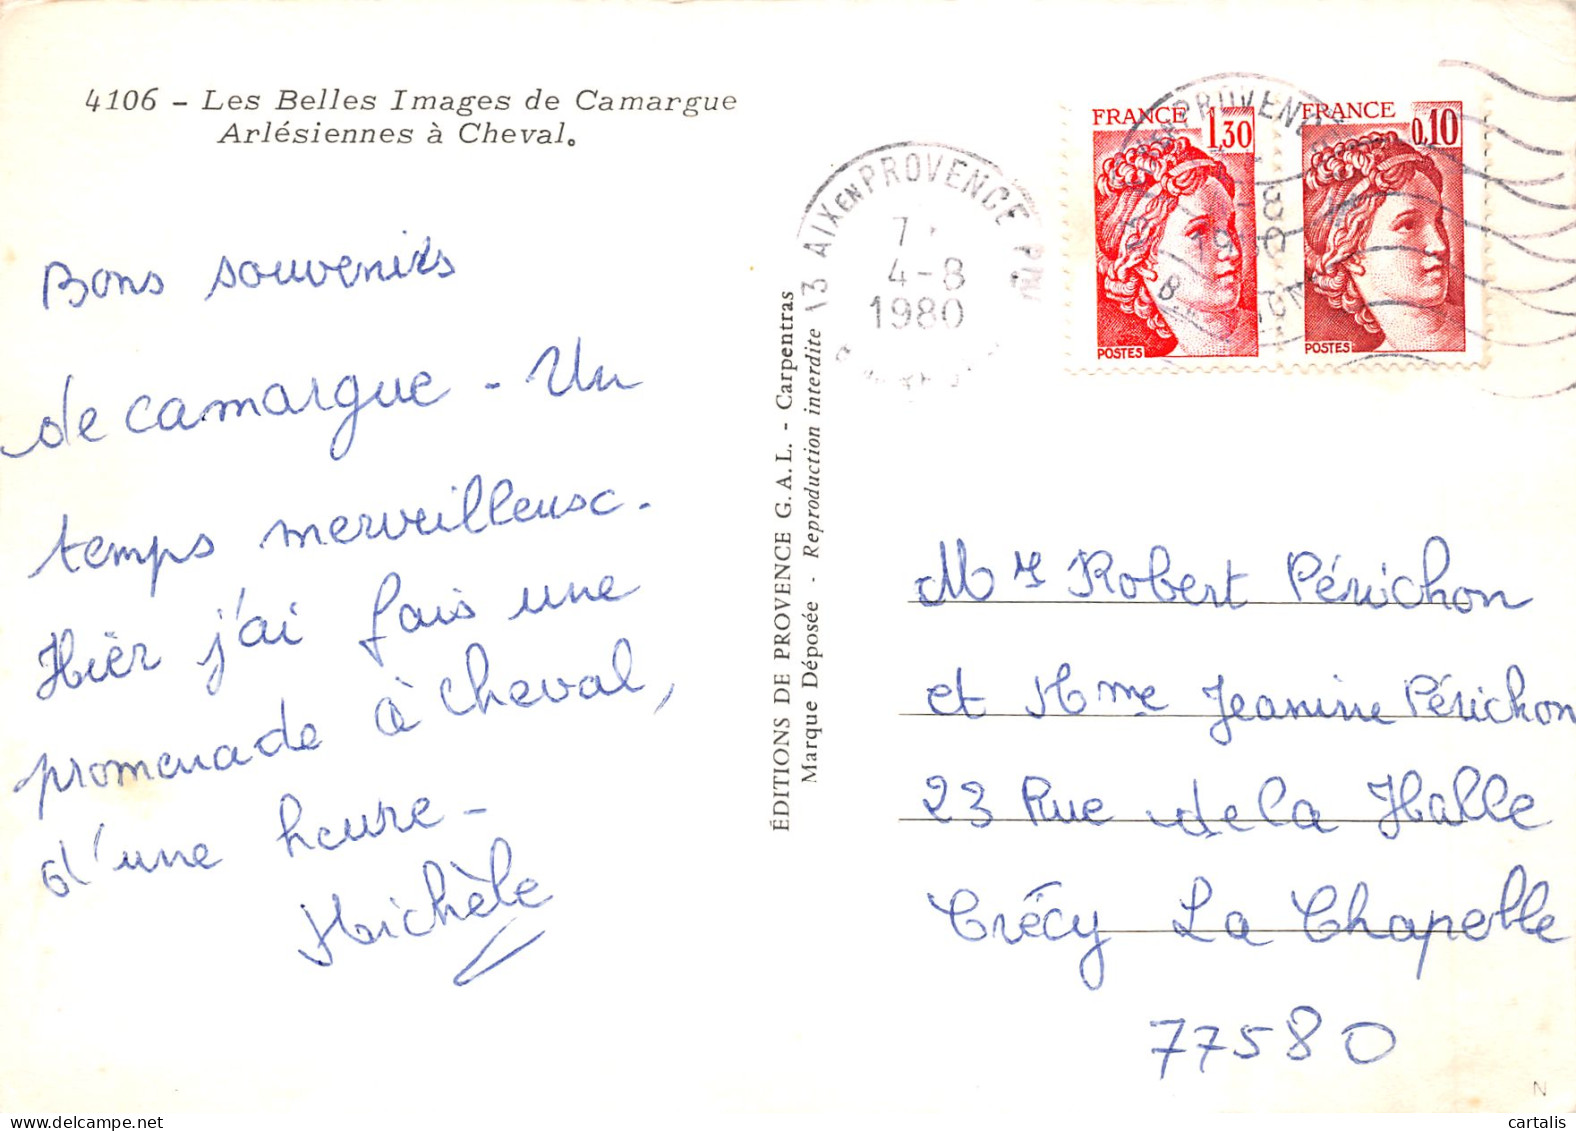 4106 - Les Belles Images de Camargue
Arlésiennes à Cheval.
Bons souvenirs
de camargue - Un
temps merveilleuse.
Hier j'ai fais une
promenade à cheval,
d'une heure -
Michèle
ÉDITIONS DE PROVENCE G.A.L. - Carpentras
Marque Déposée - Reproduction interdite
13 AIX EN PROVENCE
4-8
1980
FRANCE
1,30
POSTES
FRANCE
0,10
POSTES
Mr Robert Périchon
et Mme Jeanine Périchon
23 Rue de la Halle
Crécy La Chapelle
77580
N
cartalis